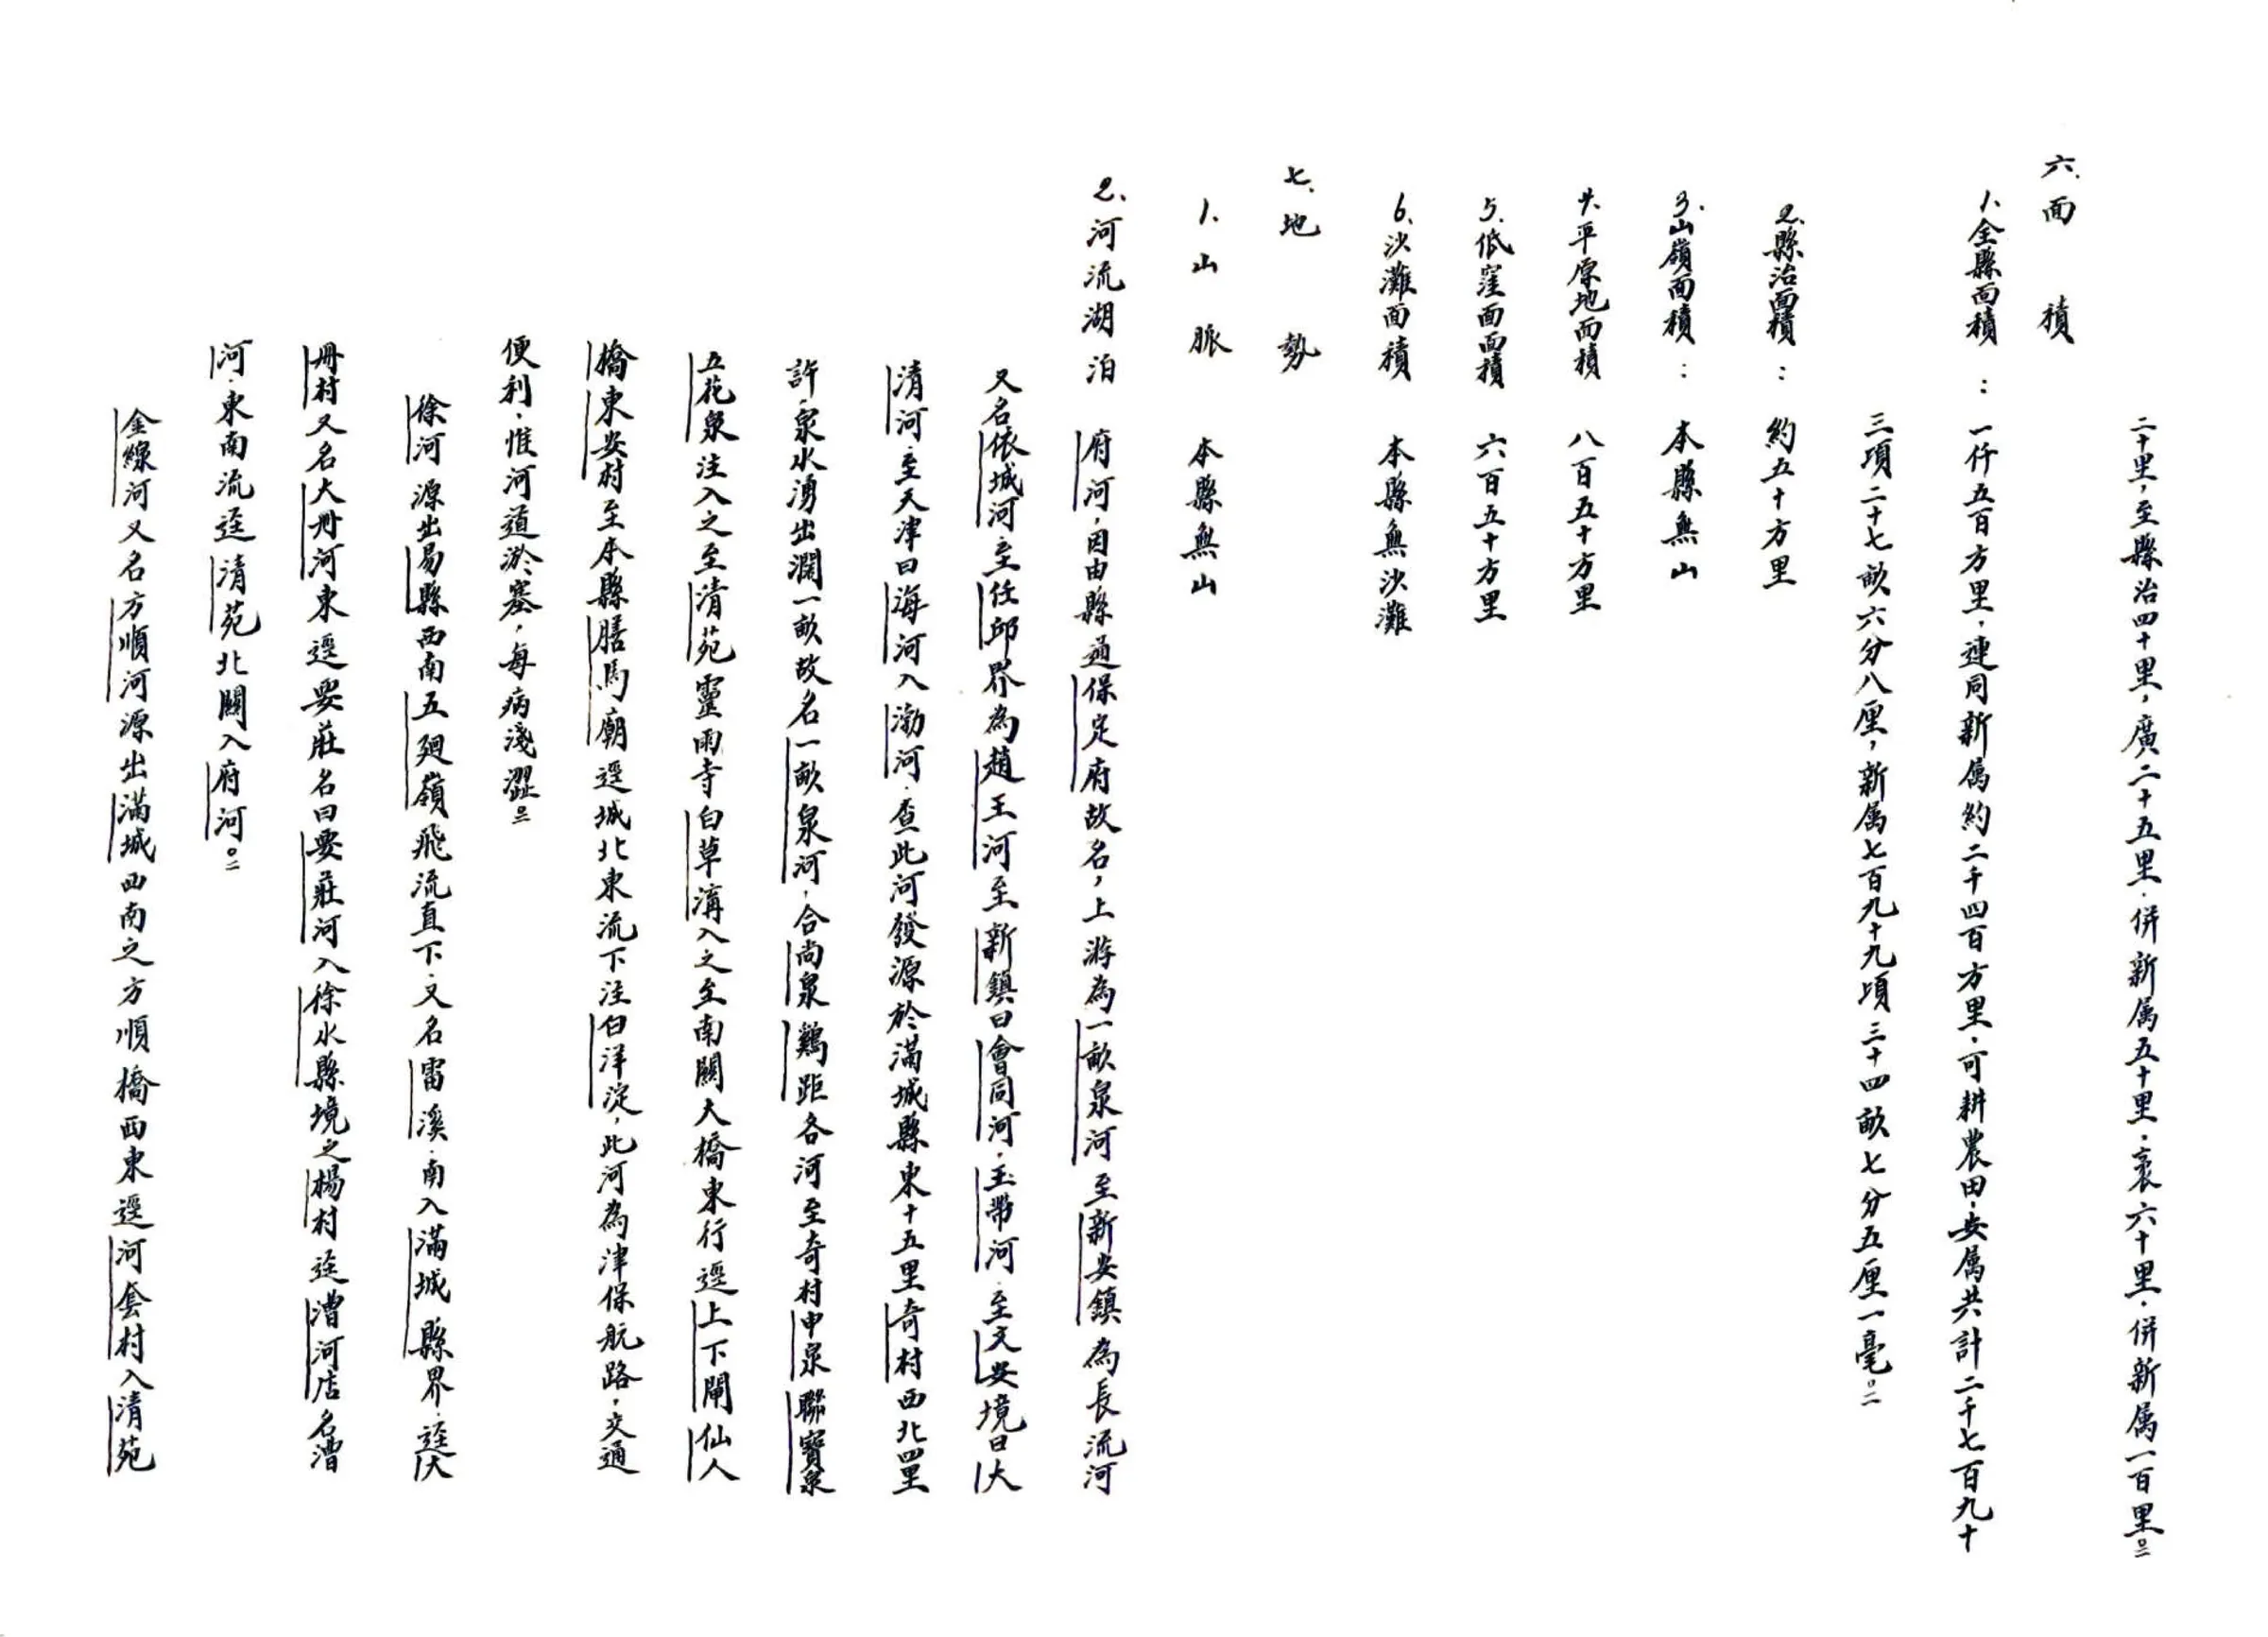 二十里，至縣治四十里，廣二十五里．併新属五十里．袤六十里．併新属一百里。二
六．面　積
1.全縣面積：一仟五百方里．連同新属約二千四百方里．可耕農田．安属共計二千七百九十
三項二十七畝六分八厘，新属七百九十九項三十四畝七分五厘一毫。二
2.縣治面積：約五十方里
3.山嶺面積：本縣無山
4.平原地面積　八百五十方里
5.低窪面面積　六百五十方里
6.沙灘面積　本縣無沙灘
七．地　勢
1.山脈　本縣無山
2.河流湖泊　府河，因由縣過保定府故名，上游為一畝泉河至新安鎮為長流河
又名依城河．至任邱界為趙王河至新鎮曰會同河．玉帶河．至文安境曰大
清河．至天津曰海河入渤河．查此河發源於滿城縣東十五里奇村西北四里
許．泉水湧出濶一畝故名一畝泉河．合尚泉鷄距各河至奇村申泉聯寶泉
五花泉注入之至清苑靈雨寺白草溝入之至南關大橋東行逕上下閘仙人
橋東安村至本縣膳馬廟逕城北東流下注白洋淀，此河為津保航路，交通
便利．惟河道淤塞，每病淺澀。三
徐河源出易縣西南五廻嶺飛流直下．又名雷溪．南入滿城縣界．逕大
冊村又名大冊河東逕要莊名曰要莊河入徐水縣境之楊村逕漕河店名漕
河．東南流逕清苑北關入府河。二
金線河又名方順河源出滿城西南之方順橋西東逕河套村入清苑